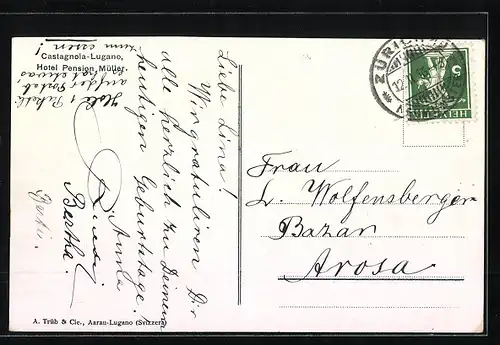 Castagnola-Lugano,
Hotel Pension Müller.
Liebe Lina!
Wir gratuliren Dir
alle herzlich zu Deinem
heutigen Geburtstage!
Anna
Bertha.
auf der Post ab
hat etwas
zum essen!
Frau
L. Wolfensberger
Bazar
Arosa
ZÜRICH
5
HELVETIA
A. Trüb & Cie., Aarau-Lugano (Svizzera)